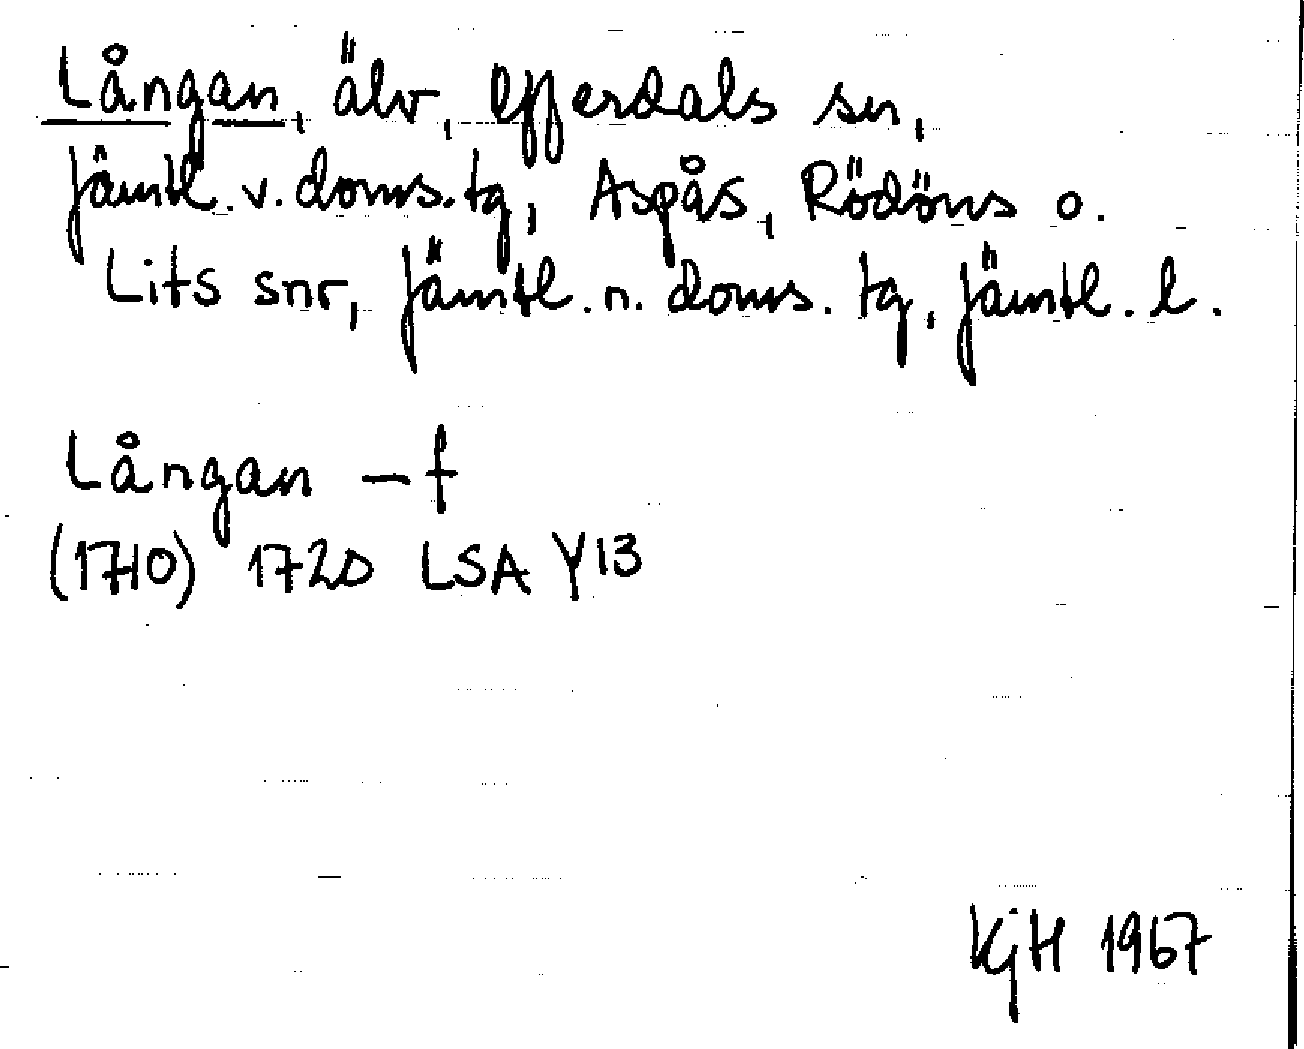 Långan, älv, Offerdals sn,
Jämtl. v. doms. tg, Aspås, Rödöns o.
Lits snr, Jämtl. n. doms. tg, Jämtl. l.
Långan – f
(1710) 1720 LSA Y13
KjH 1967